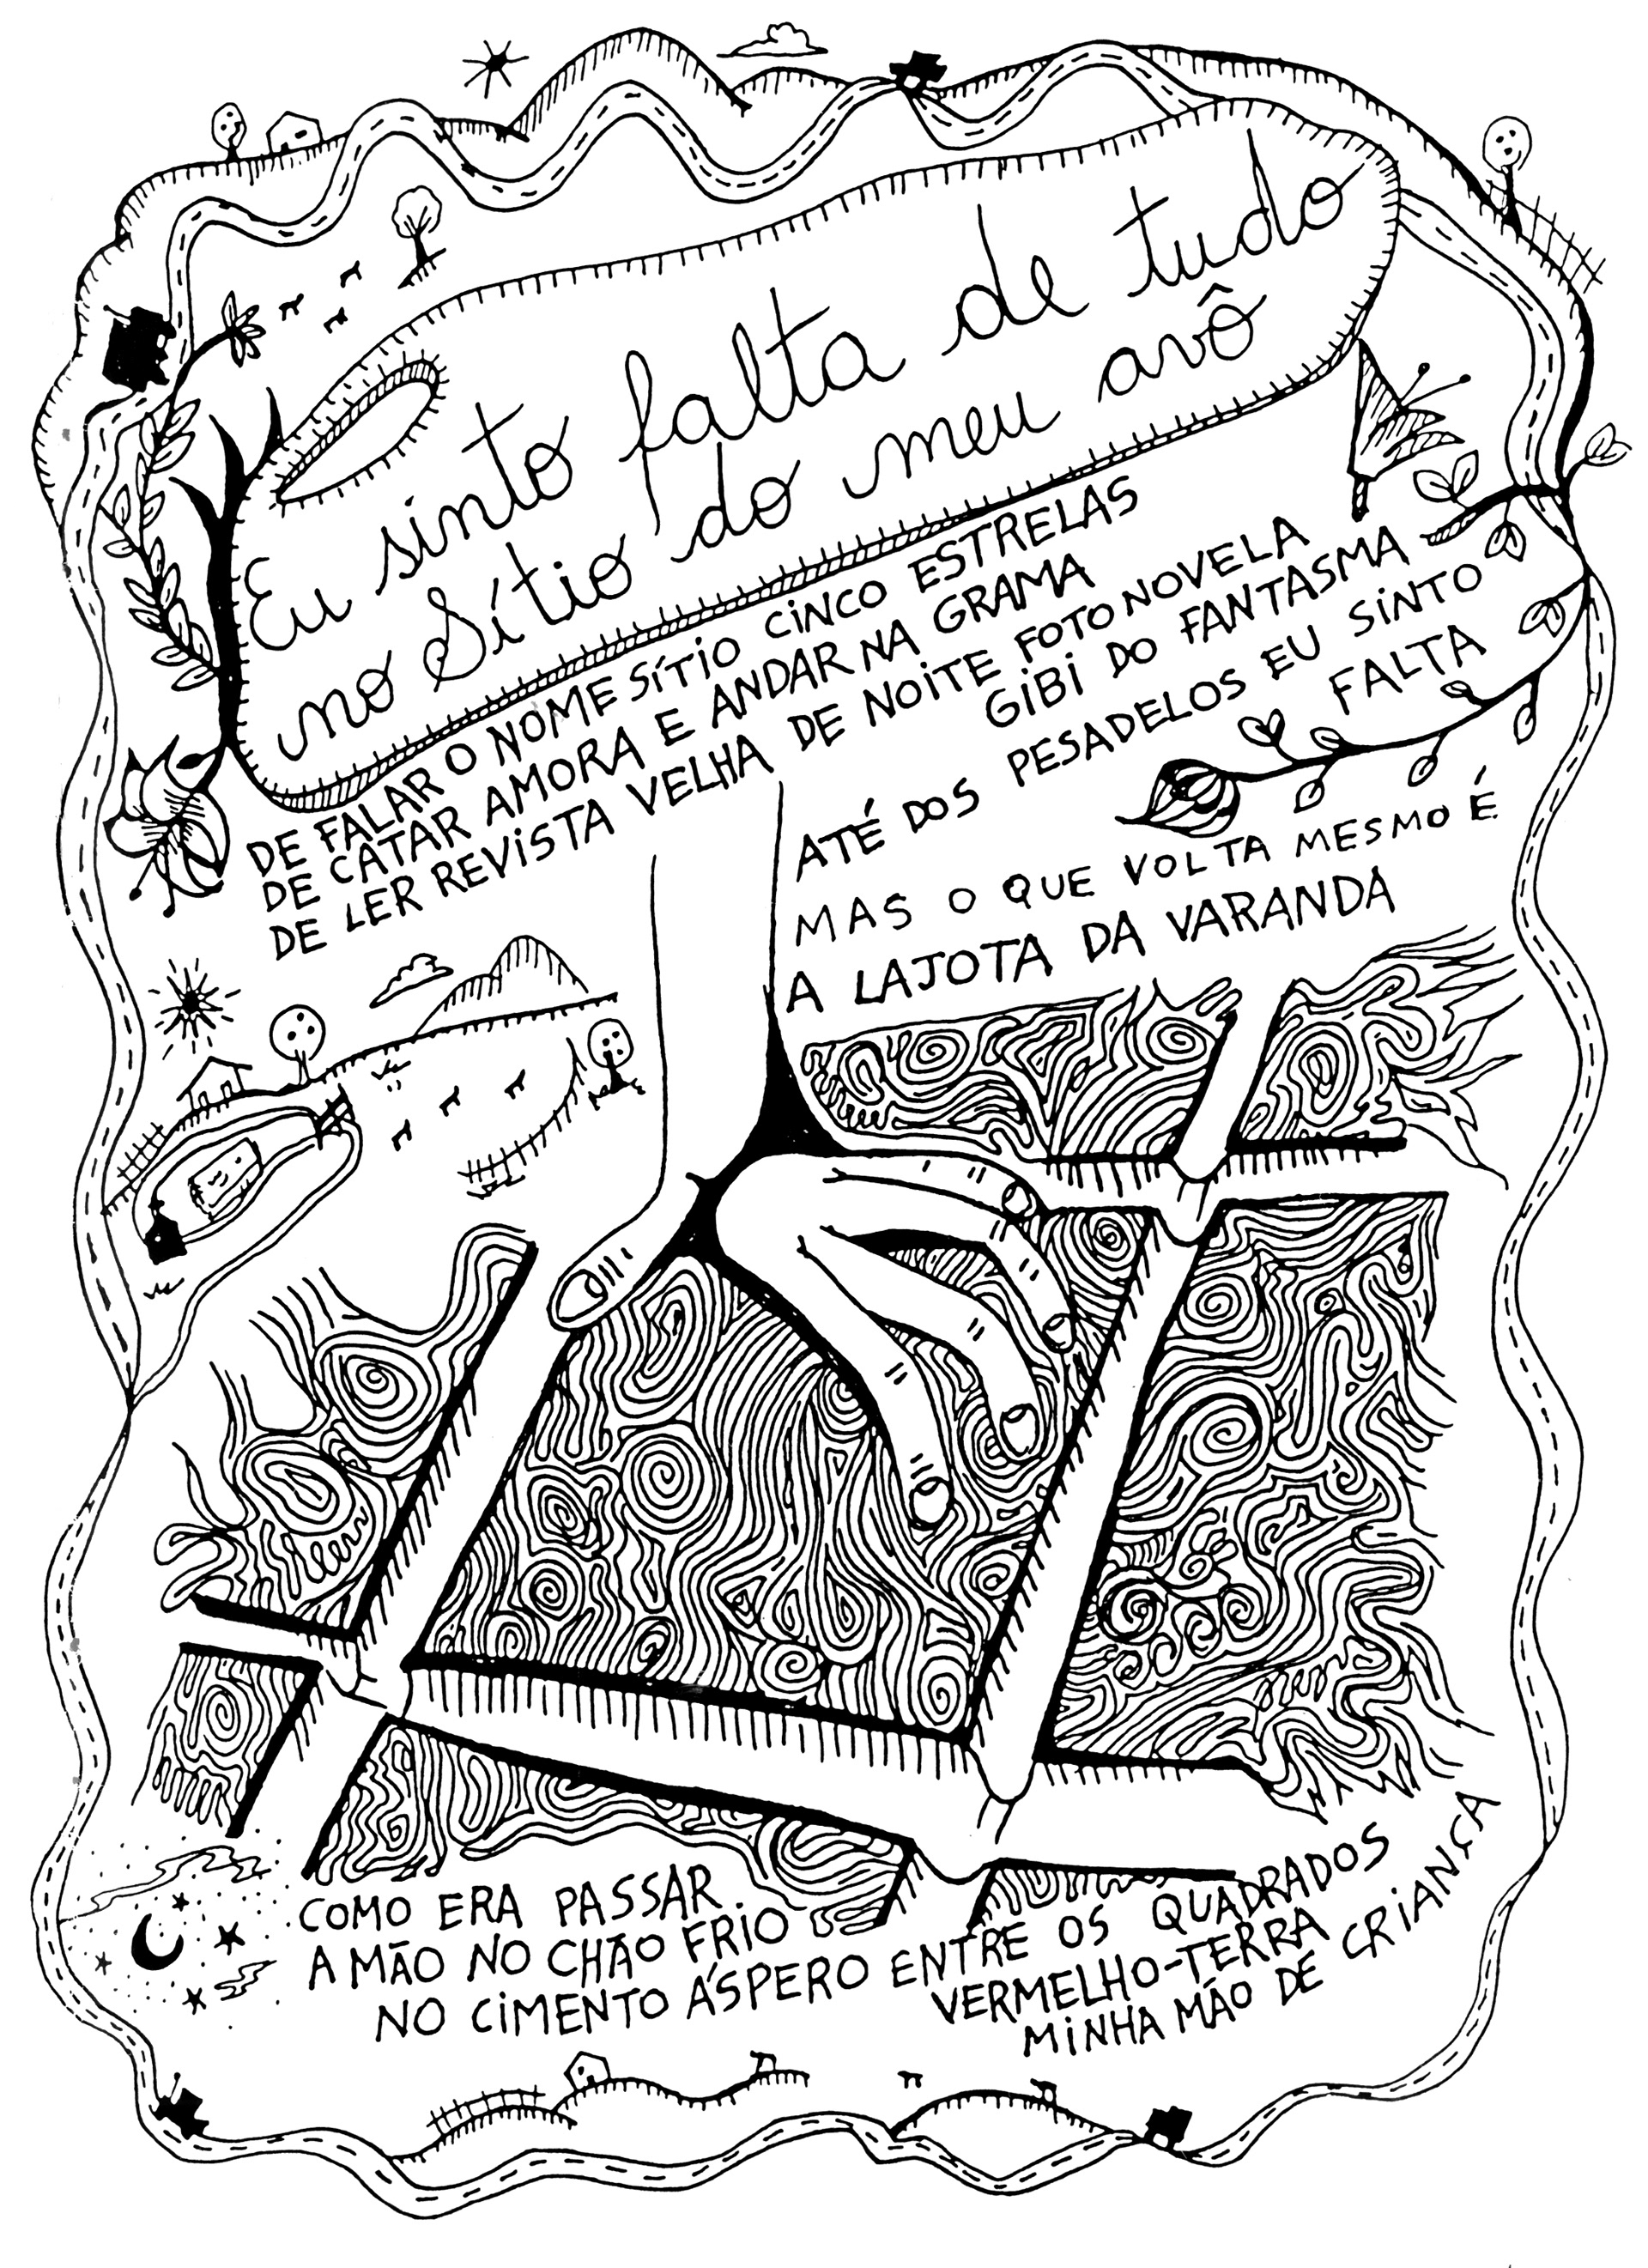 Eu sinto falta de tudo
no Sítio do meu avô
DE FALAR O NOME SÍTIO CINCO ESTRELAS
DE CATAR AMORA E ANDAR NA GRAMA
DE LER REVISTA VELHA DE NOITE FOTONOVELA
GIBI DO FANTASMA
ATÉ DOS PESADELOS EU SINTO
FALTA
MAS O QUE VOLTA MESMO É
A LAJOTA DA VARANDA
COMO ERA PASSAR
A MÃO NO CHÃO FRIO
NO CIMENTO ÁSPERO ENTRE OS QUADRADOS
VERMELHO-TERRA
MINHA MÃO DE CRIANÇA